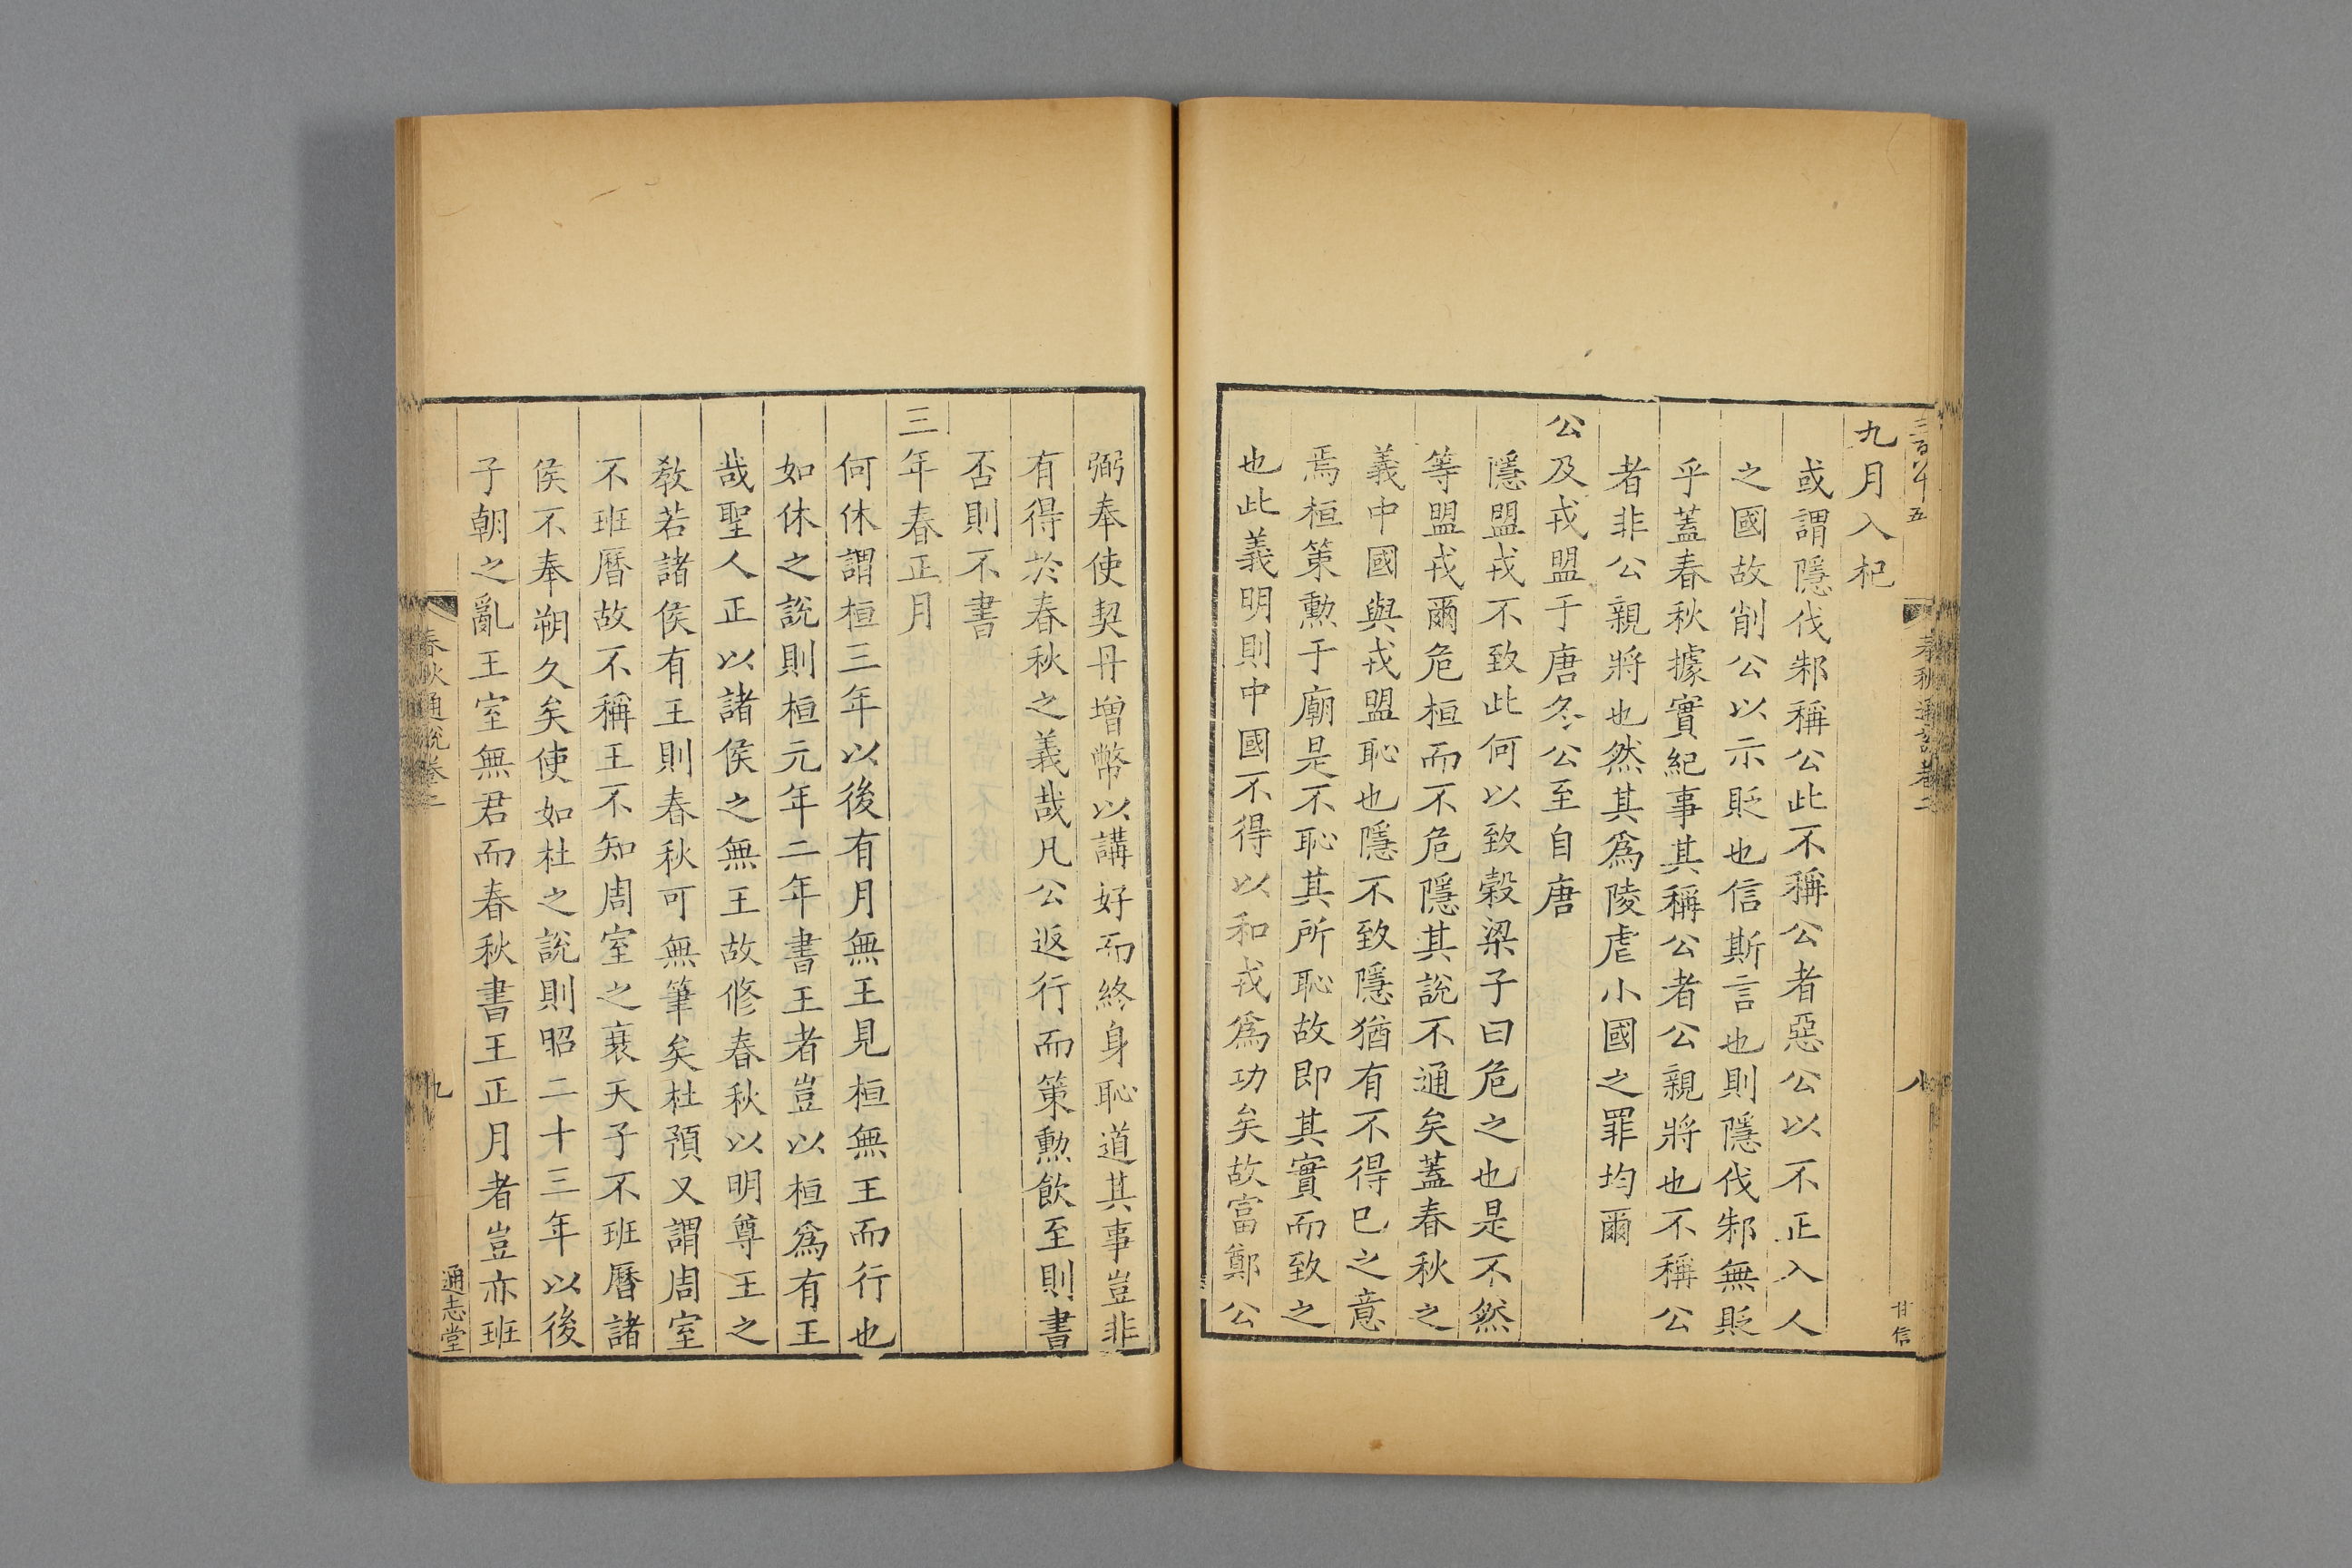 春秋通說卷二
八
甘信
九月入杞
或謂隱伐邾稱公此不稱公者惡公以不正入人
之國故削公以示貶也信斯言也則隱伐邾無貶
乎蓋春秋據實紀事其稱公者公親將也不稱公
者非公親將也然其爲陵虐小國之罪均爾
公及戎盟于唐冬公至自唐
隱盟戎不致此何以致榖梁子曰危之也是不然
等盟戎爾危桓而不危隱其說不通矣蓋春秋之
義中國與戎盟恥也隱不致隱猶有不得已之意
焉桓策勲于廟是不恥其所恥故即其實而致之
也此義明則中國不得以和戎爲功矣故富鄭公
弼奉使契丹增幣以講好而終身恥道其事豈非
有得於春秋之義哉凡公返行而策勲飲至則書
否則不書
三年春正月
何休謂桓三年以後有月無王見桓無王而行也
如休之說則桓元年二年書王者豈以桓爲有王
哉聖人正以諸侯之無王故修春秋以明尊王之
教若諸侯有王則春秋可無筆矣杜預又謂周室
不班曆故不稱王不知周室之衰天子不班曆諸
侯不奉朔久矣使如杜之說則昭二十三年以後
子朝之亂王室無君而春秋書王正月者豈亦班
春秋通說卷二
九
通志堂